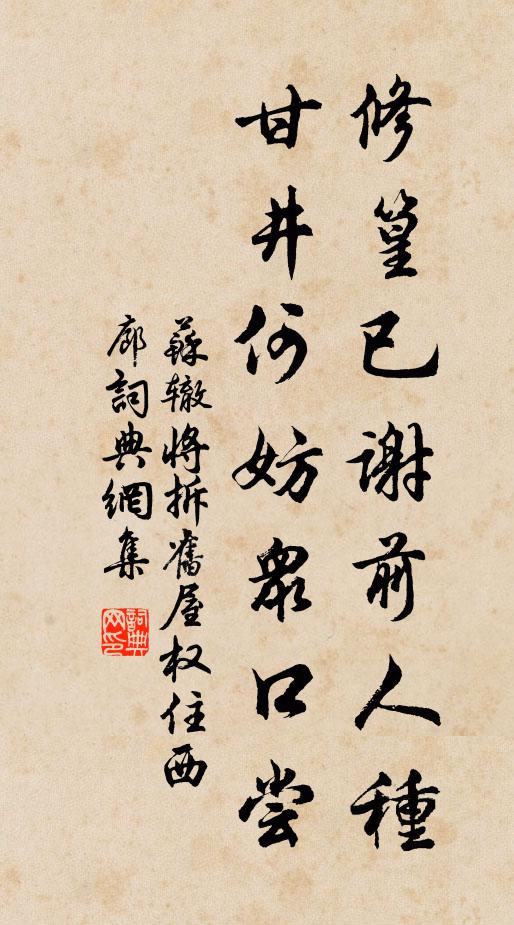 修篁已谢前人種
甘井何妨衆口尝
蘇辙将拆舊屋权住西
廊詞典網集
詞典网印